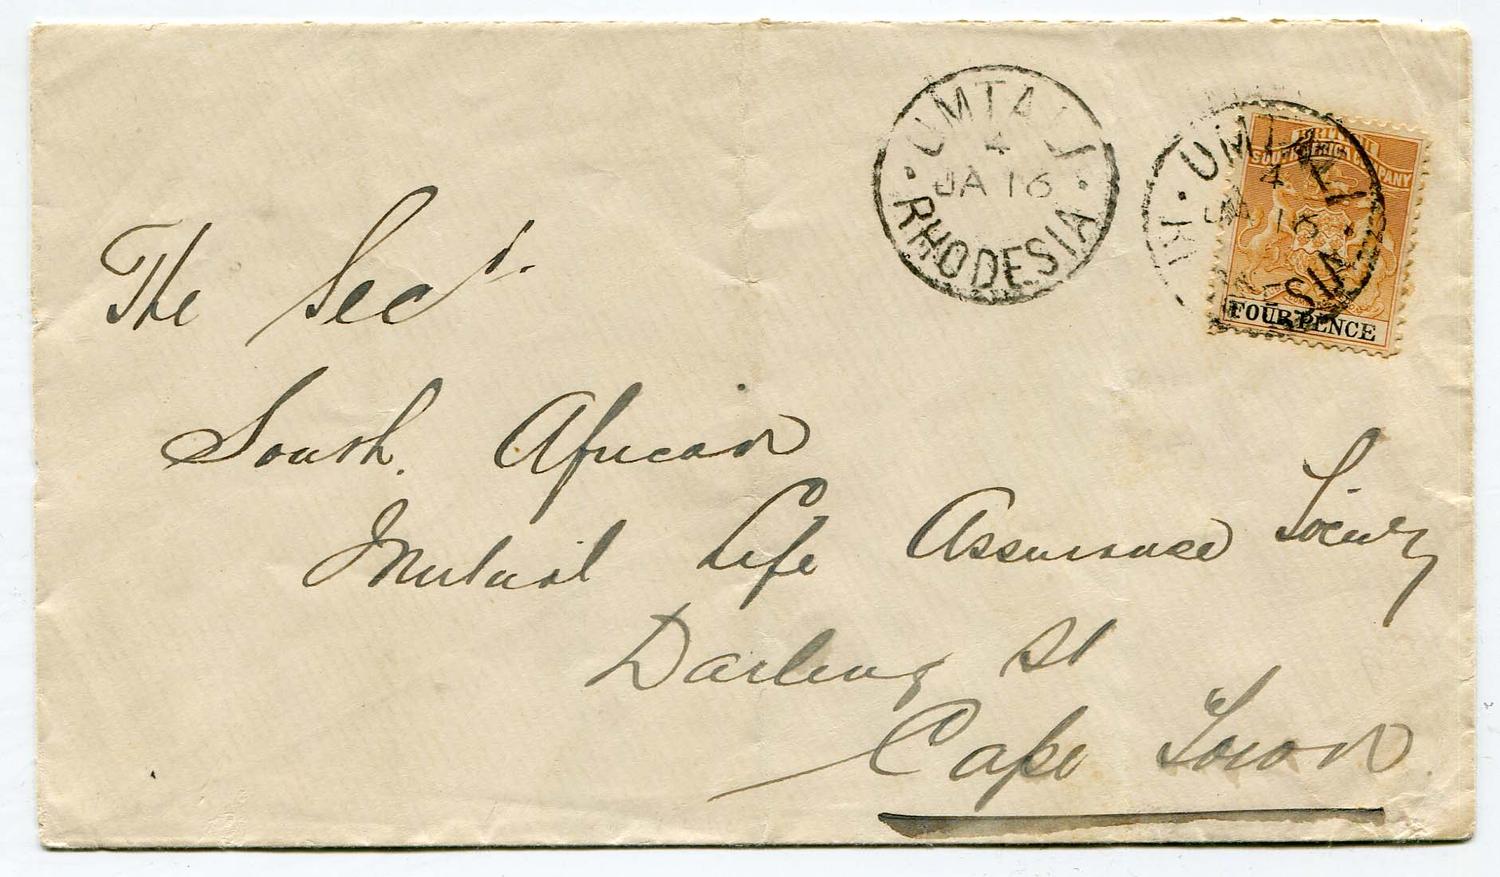 UMTALI
4
JA 16
RHODESIA
UMTALI
4
JA 16
BRITISH
SOUTH AFRICA COMPANY
FOUR PENCE
The Secy.
South African
Mutual Life Assurance Society
Darling St
Cape Town